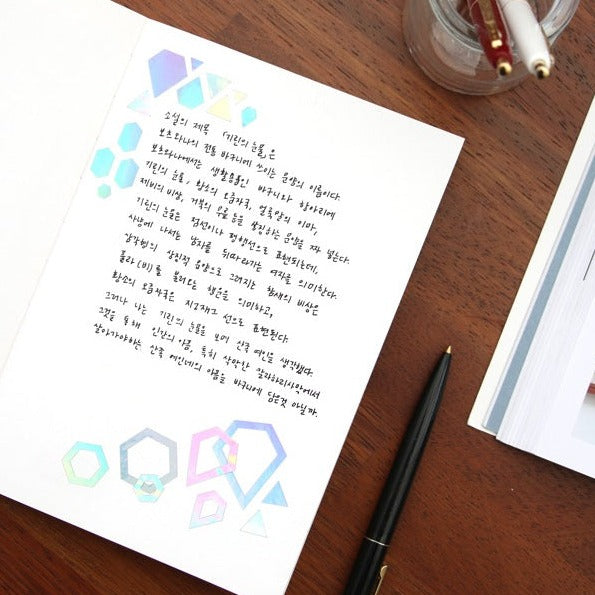 소설의 제목 〈기린의 눈물〉은
보츠와나의 전통 바구니에 쓰이는 문양의 이름이다.
보츠와나에서는 생활용품인 바구니와 항아리에
기린의 눈물, 황소의 오줌자국, 얼룩말의 이마,
제비의 비상, 거북의 무릎 등을 상징하는 문양을 짜 넣는다.
기린의 눈물은 점선이나 평행선으로 표현되는데,
사냥에 나서는 남자를 뒤따라가는 여자를 의미한다.
삼각형의 상징적 음양으로 그려지는 참새의 비상은
풀라(비)를 불러오는 행운을 의미하고,
황소의 오줌자국은 지그재그 선으로 표현된다.
그러나 나는 기린의 눈물을 보며 산족 여인을 생각했다.
그것을 통해 인간의 아픔, 특히 삭막한 칼라하리사막에서
살아가야하는 산족 여인네의 아픔을 바구니에 담은것 아닐까.